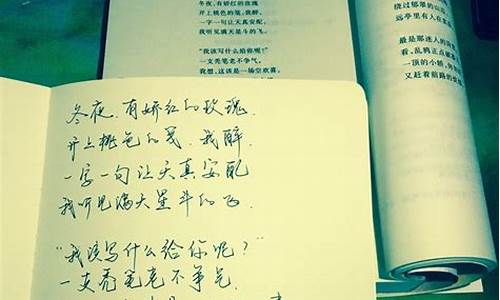 冬夜，有娇红的玫瑰
开上桃色的笺，我醉，
一字一句让天真安配，
我听见满天星斗的飞。
"我该写什么给你呢？"
一支秃笔老不争气，
我想，这该是一场空欢喜，
绕过郁翠的山
远亭里有人在
最是那迷人的
看，乱鸦正点破
一顶的小轿，
又赶着前路的
冬夜，有娇红的玫瑰，
开上桃色的笺，我醉，
一字一句让天真安配
我听见满天星斗的飞.
"我该写什么给你呢？"
一支秃笔老不争气.